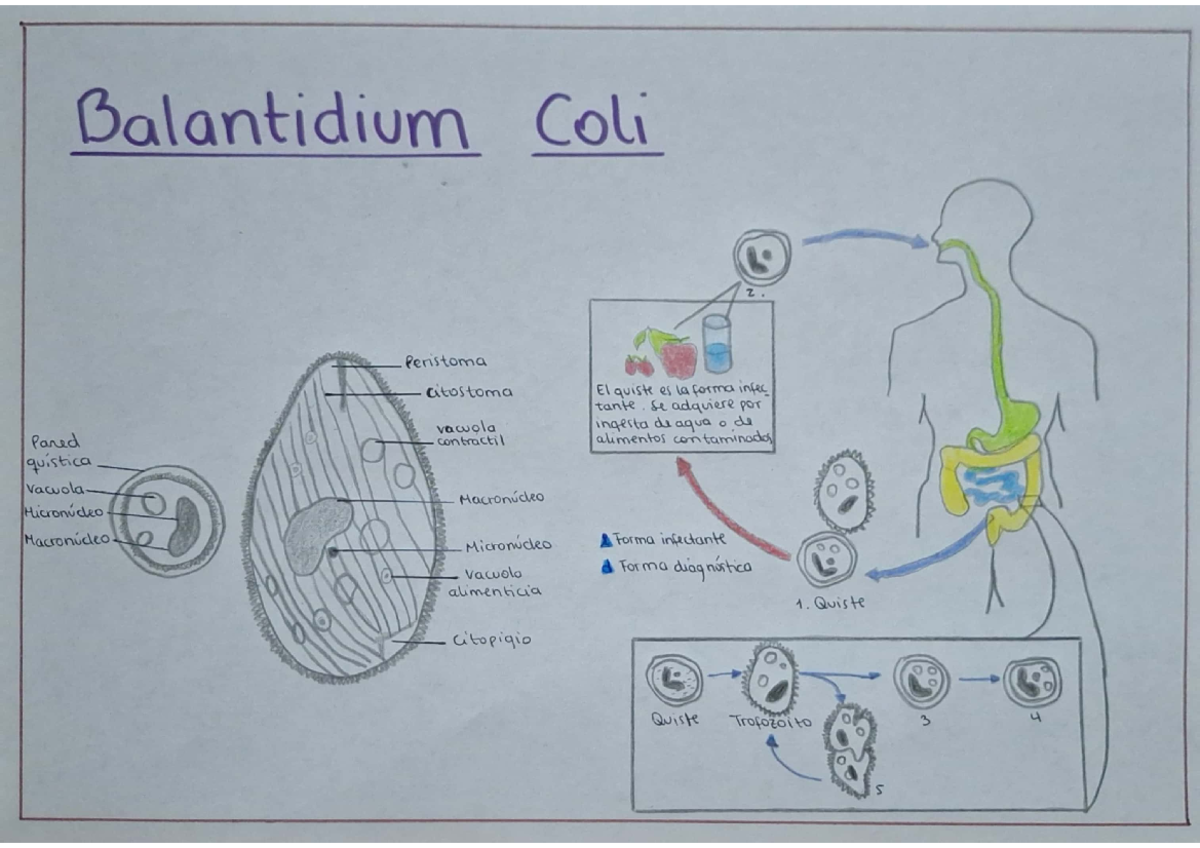 Balantidium Coli
Pared
quística
Vacuola
Micronúcleo
Macronúcleo
Peristoma
Citostoma
vacuola
contractil
Macronúcleo
Micronúcleo
Vacuola
alimenticia
Citopigio
2.
El quiste es la forma infec-
tante. Se adquiere por
ingesta de agua o de
alimentos contaminados
Forma infectante
Forma diagnóstica
1. Quiste
Quiste
Trofozoito
3
4
5